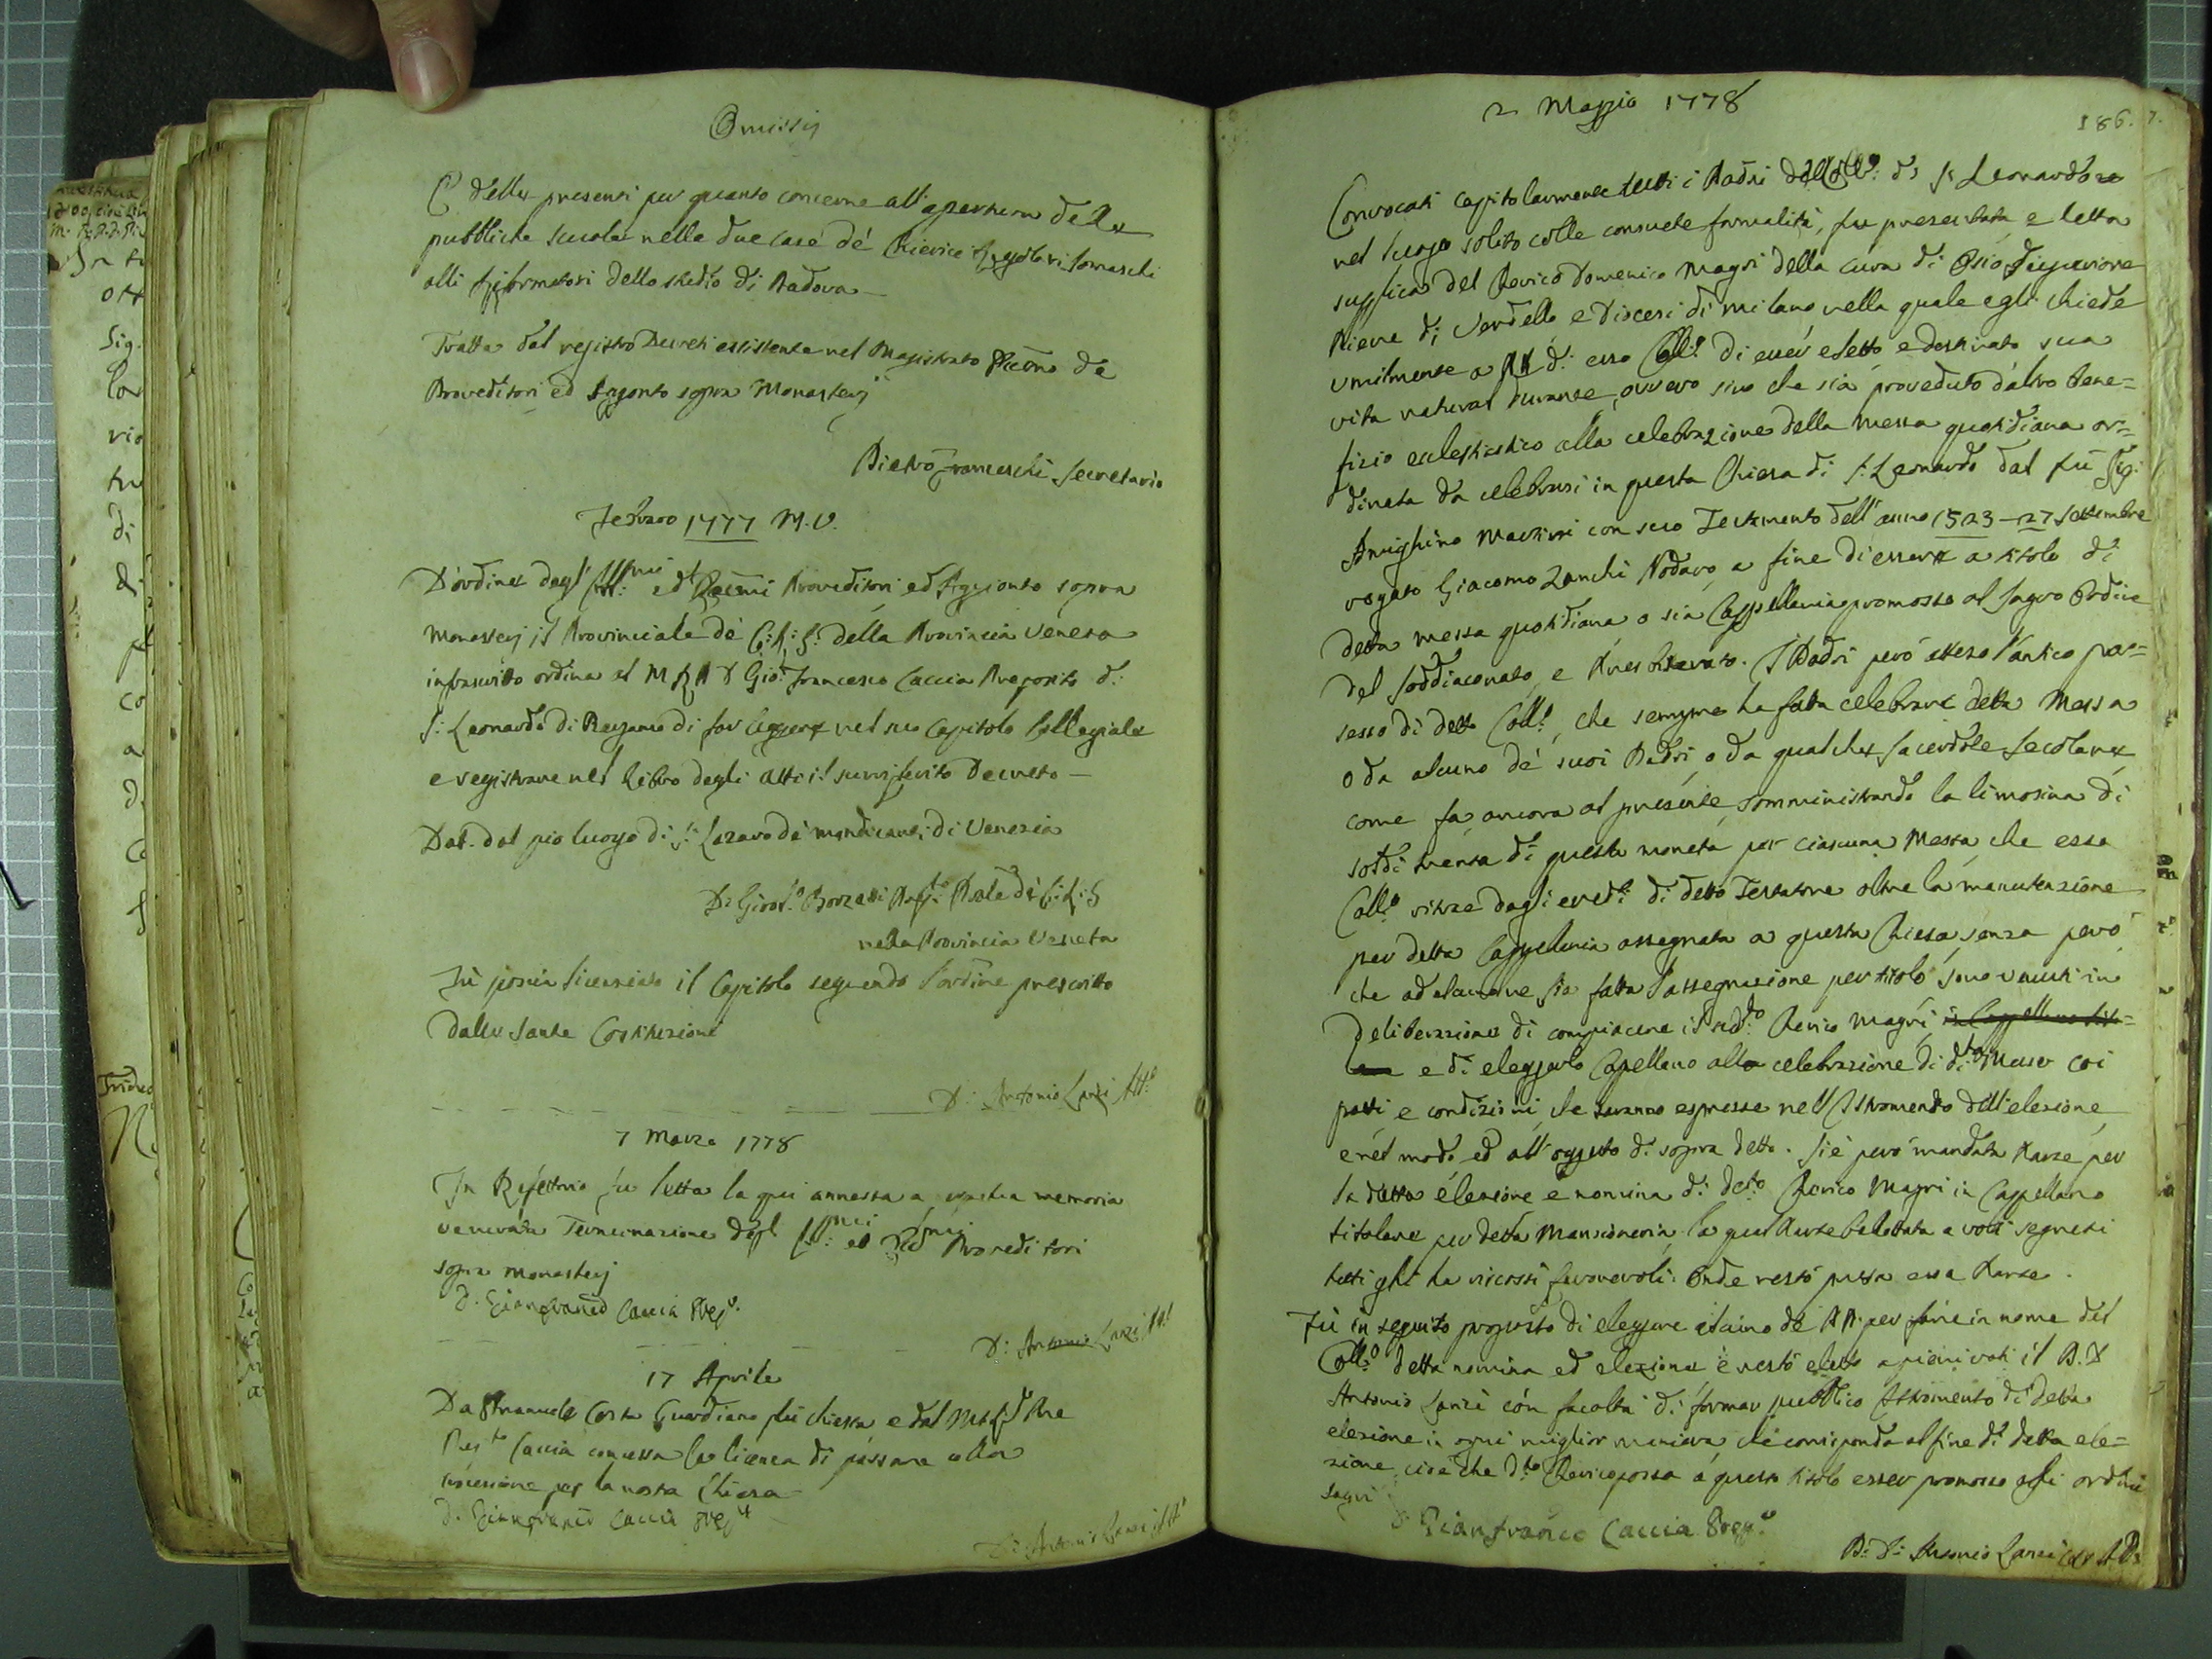 Omissis
E delle presenti per quanto concerne all'apertura delle
pubbliche scuole nelle due case de' Chierici Regolari Somaschi
alli Riformatori dello Studio di Padova —
Tratta dal registro Decreti essistente nel Magistrato Eccmo de
Proveditori ed Aggionto sopra Monasterj
Pietro Franceschi Secretario
Febraro 1777 M.V.
D'ordine degl' Illmi ed Eccmi Proveditori ed Aggionto sopra
Monasterj il Provinciale de' C: R: S: della Provincia Veneta
infrascritto ordina al M R P D Gio: Francesco Caccia Preposito di
S: Leonardo di Bergamo di far leggere nel suo Capitolo Collegiale
e registrare nel Libro degli Atti il surriferito Decreto —
Dat. dal pio luogo di S: Lazaro de' mendicanti di Venezia
D: Girol:o Borzatti Prep:o Prãle de' C: R: S
nella Provincia Veneta
Fù poscia licenziato il Capitolo seguendo l'ordine prescritto
dalle Sante Costituzioni
D: Antonio Lanzi Att:o
7 Marzo 1778
In Refettorio fu letta la qui annessa a memoria
venerata Terminazione degl' Ill:mi ed Proveditori
sopra Monasterj
D. Gianfranco Caccia Prep:o
D: Antonio Lanzi Att:o
17 Aprile
Da Emanuele Costa Guardiano fù chiesta e dal M R P Pre
Prep:to Caccia concessa la licenza di passare alla
per la nostra Chiesa —
D. Gianfranco Caccia Prep:o
D: Antonio Lanzi Att:o
2 Maggio 1778
186. 7.
Convocati capitolarmente tutti i Padri del Coll:o di S: Leonardo
nel luogo solito colle consuete formalità, fu presentata e letta
supplica del Cherico Domenico Magri della cura di Osio Superiore
Pieve di Verdello e Diocesi di Milano nella quale egli chiede
umilmente a PP. di esso Coll:o di esser eletto e destinato sua
vita natural durante, ovvero sino che sia proveduto d'altro bene=
fizio eclesiastico alla celebrazione della Messa quotidiana or=
dinata da celebrarsi in questa Chiesa di S: Leonardo dal fù Sig:
Amighino con suo Testamento dell'anno 1523 — 27 Settembre
rogato Giacomo Zanchi Nodaro, a fine di essere a titolo di
detta messa quotidiana o sia Cappellania promosso al sagro Ordine
del Soddiaconato, e Presbiterato. I Padri però atteso l'antico pos=
sesso di detto Coll:o, che sempre ha fatta celebrare detta Messa
o da alcuno de' suoi Padri, o da qualche Sacerdote Secolare
come fa ancora al presente, somministrando la limosina di
soldi trenta di questa moneta per ciascuna Messa, che esso
Coll:o ritrae dagli eredi di detto Testatore oltre la manutenzione
per detta Cappellania assegnata a questa Chiesa, senza però
che ad alcuno ne sia fatta l'assegnazione per titolo sono venuti in
deliberazione di compiacere il sud:to Cherico Magri, in Cappellano tito=
lare e di eleggerlo Capellano alla celebrazione di d:ta Messa coi
patti e condizioni, che saranno espresse nell'Istromento dell'elezione
e nel modo ed all'oggetto di sopra detto. Si è però mandata Parte per
la detta elezione e nomina di detto Cherico Magri in Cappellano
titolare per detta Mansioneria, la qual Parte balottata a voti segreti
tutti gli ha riscossi favorevoli: Onde restò presa essa Parte.
Fù in seguito proposto di eleggere alcuno de' PP. per farne in nome del
Coll:o detta nomina ed elezione e restò eletto a pieni voti il P. D.
Antonio Lanzi con facoltà di formar pubblico Istromento di detta
elezione in ogni miglior maniera che corrisponda al fine di detta ele=
zione, cioè che d:to Cherico possa a questo titolo esser promosso agli ordini
sagri
D: Gianfranco Caccia Prep:o
P: D: Antonio Lanzi